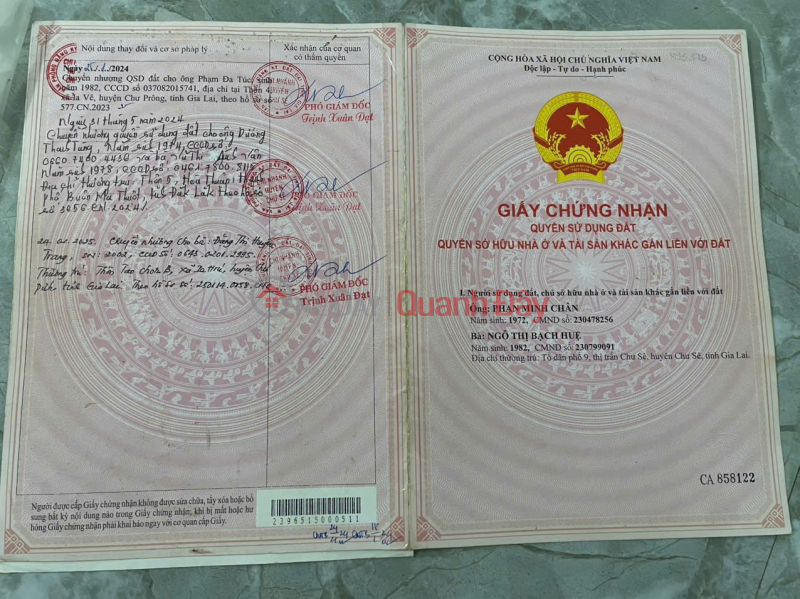 Nội dung thay đổi và cơ sở pháp lý
Xác nhận của cơ quan
có thẩm quyền
Ngày 2024
Chuyển nhượng QSD đất cho ông Phạm Đa Túc, sinh
năm 1982, CCCD số 037082015741, địa chỉ tại Thôn
xã Ia Vê, huyện Chư Prông, tỉnh Gia Lai, theo hồ sơ số
577.CN.2023
PHÓ GIÁM ĐỐC
Trịnh Xuân Đạt
Ngày 31 tháng 5 năm 2024
Chuyển nhượng quyền sử dụng đất cho ông Dương
Thanh Tùng, Năm sinh 1974, CCCD số:
và bà
Năm sinh 1978, CCCD số:
Địa chỉ thường trú, Thôn 5, Hòa Thuận, Thành
phố Buôn Ma Thuột, tỉnh Đắk Lắk theo hồ sơ
số 3056 CN 2024
PHÓ GIÁM ĐỐC
Trịnh Xuân Đạt
24.02.2025. Chuyển nhượng cho bà: Đặng Thị Huyền
Trang, sn: 2003, CCCD số:
Thường trú: Thôn xã Ia huyện Chư
tỉnh Gia Lai. Theo hồ sơ số:
PHÓ GIÁM ĐỐC
Trịnh Xuân Đạt
Người được cấp Giấy chứng nhận không được sửa chữa, tẩy xóa hoặc bổ
sung bất kỳ nội dung nào trong Giấy chứng nhận; khi bị mất hoặc hư
hỏng Giấy chứng nhận phải khai báo ngay với cơ quan cấp Giấy.
2396515000511
CỘNG HÒA XÃ HỘI CHỦ NGHĨA VIỆT NAM
Độc lập - Tự do - Hạnh phúc
GIẤY CHỨNG NHẬN
QUYỀN SỬ DỤNG ĐẤT
QUYỀN SỞ HỮU NHÀ Ở VÀ TÀI SẢN KHÁC GẮN LIỀN VỚI ĐẤT
I. Người sử dụng đất, chủ sở hữu nhà ở và tài sản khác gắn liền với đất
Ông: PHAN MINH CHÂN
Năm sinh: 1972, CMND số: 230478256
Bà: NGÔ THỊ BẠCH HUỆ
Năm sinh: 1982, CMND số: 230799091
Địa chỉ thường trú: Tổ dân phố 9, thị trấn Chư Sê, huyện Chư Sê, tỉnh Gia Lai.
CA 858122
Quanh Đây